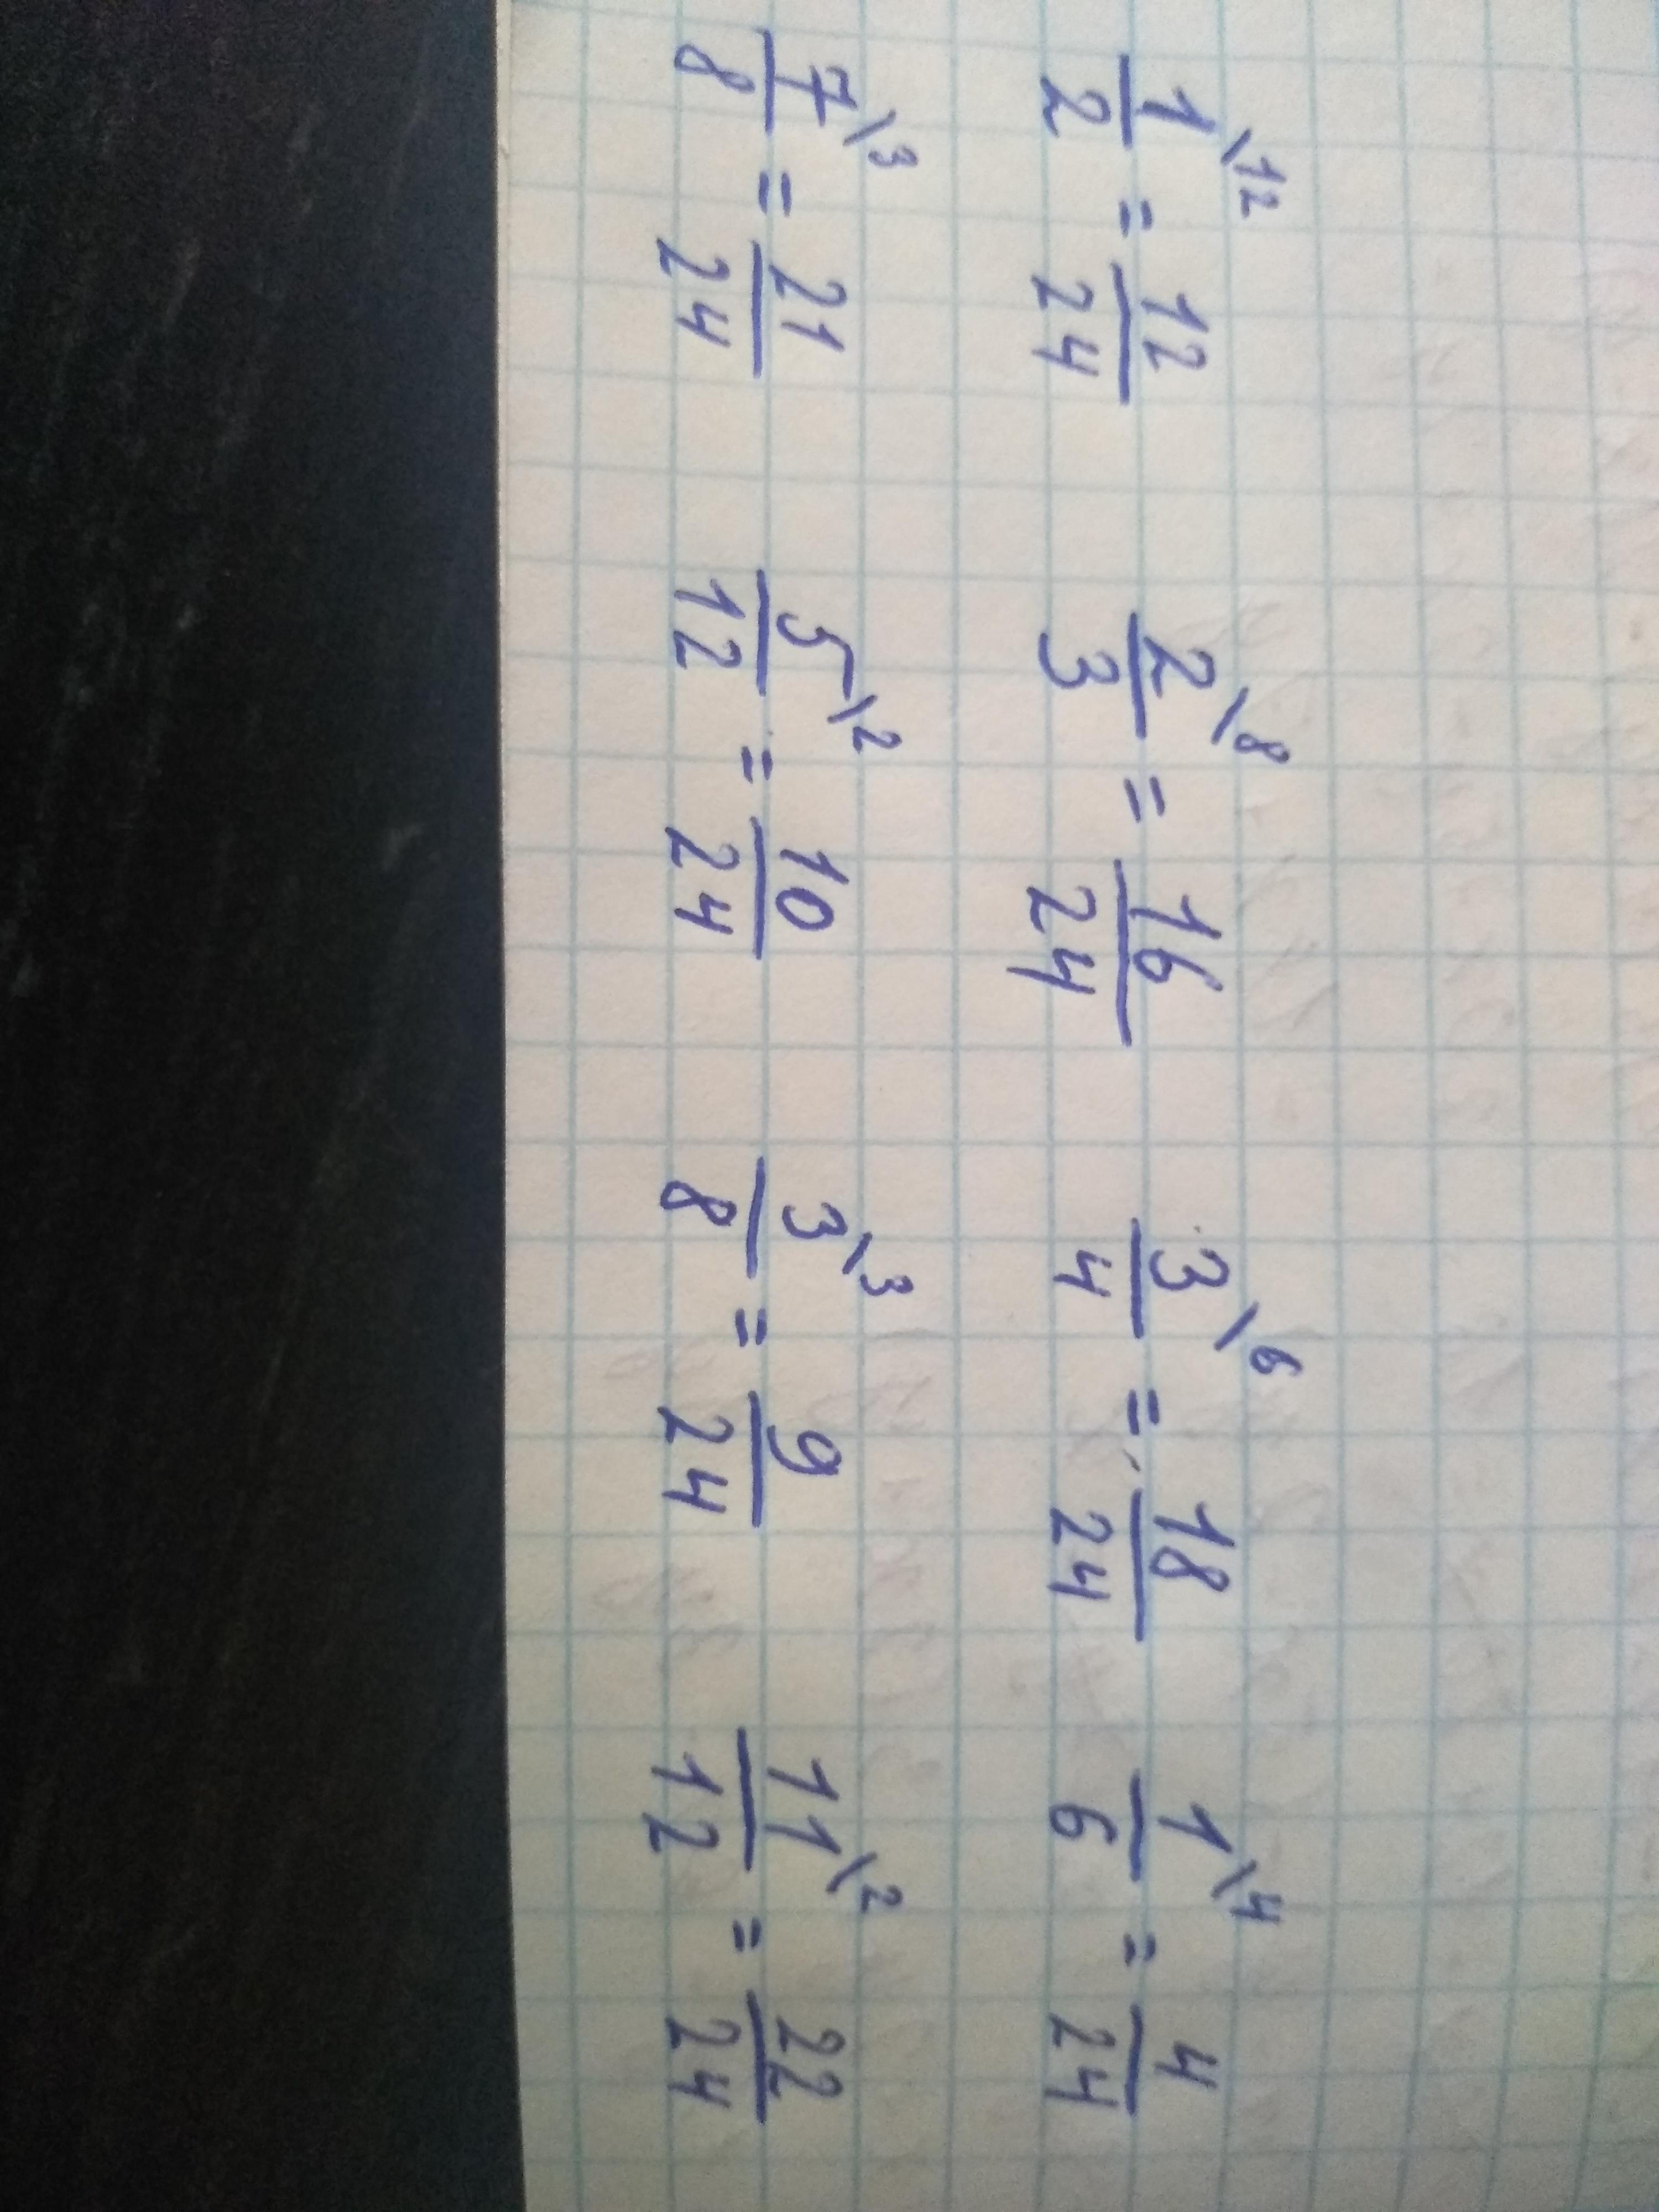 1/2 \12 = 12/24 2/3 \8 = 16/24 3/4 \6 = 18/24 1/6 \4 = 4/24
7/8 \3 = 21/24 5/12 \2 = 10/24 3/8 \3 = 9/24 11/12 \2 = 22/24